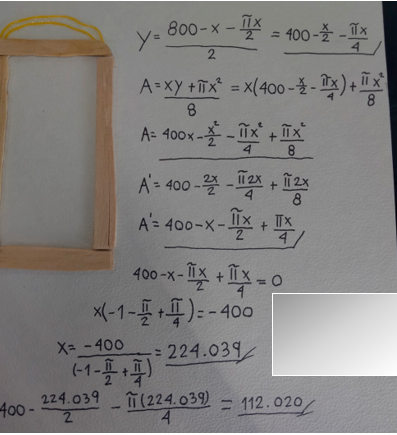 Y = (800 - x - πx/2)/2 = 400 - x/2 - πx/4
A = (xy + πx²)/8 = x(400 - x/2 - πx/4) + πx²/8
A = 400x - x²/2 - πx²/4 + πx²/8
A' = 400 - 2x/2 - π2x/4 + π2x/8
A' = 400 - x - πx/2 + πx/4
400 - x - πx/2 + πx/4 = 0
x(-1 - π/2 + π/4) = -400
x = -400/(-1 - π/2 + π/4) = 224.039
400 - 224.039/2 - π(224.039)/4 = 112.020